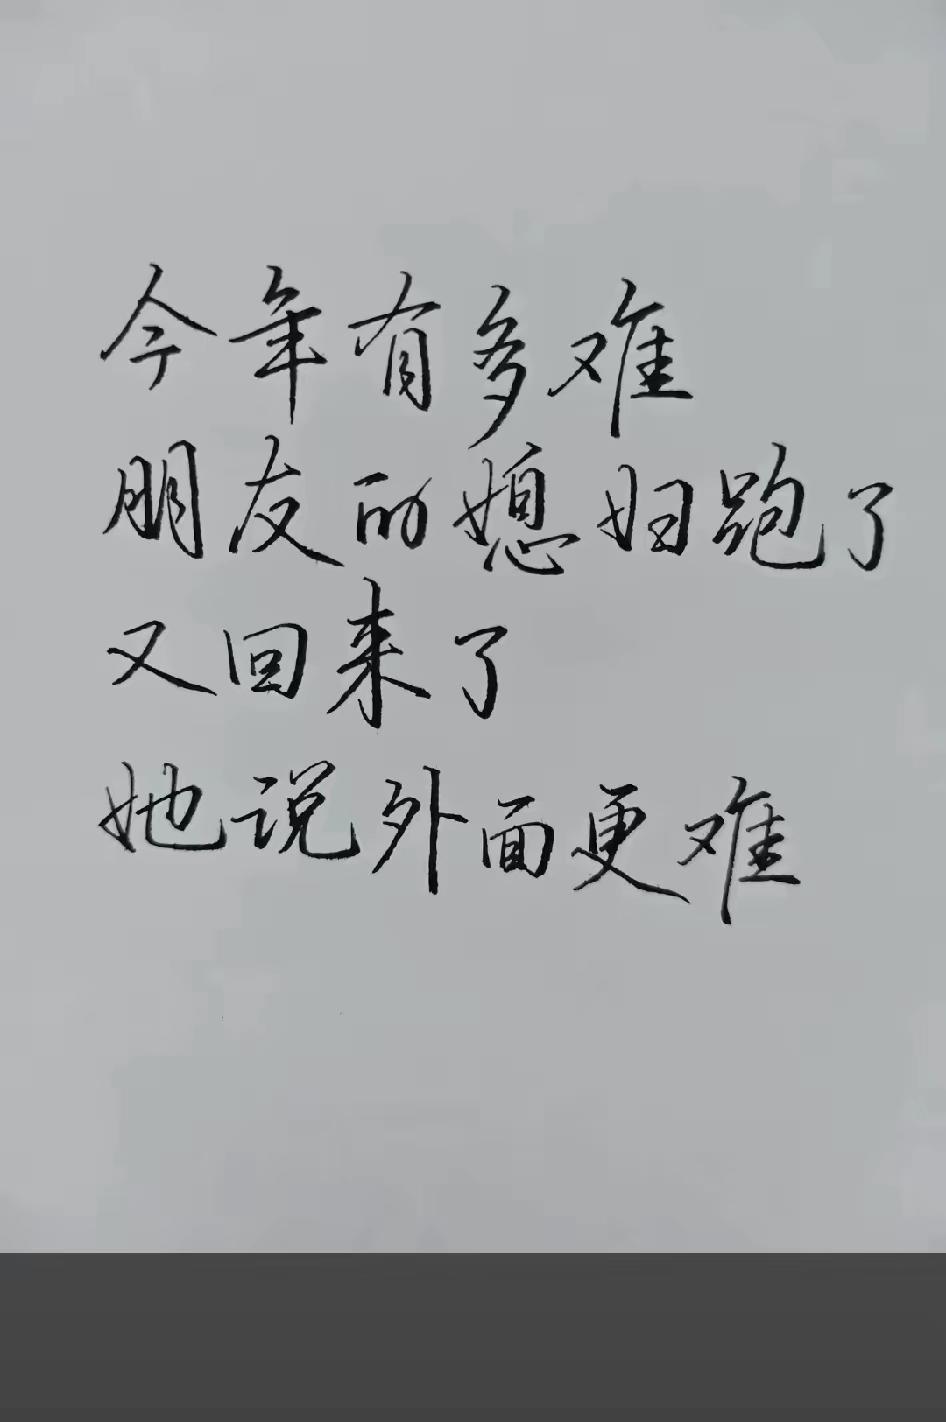 今年有多难
朋友的媳妇跑了
又回来了
她说外面更难